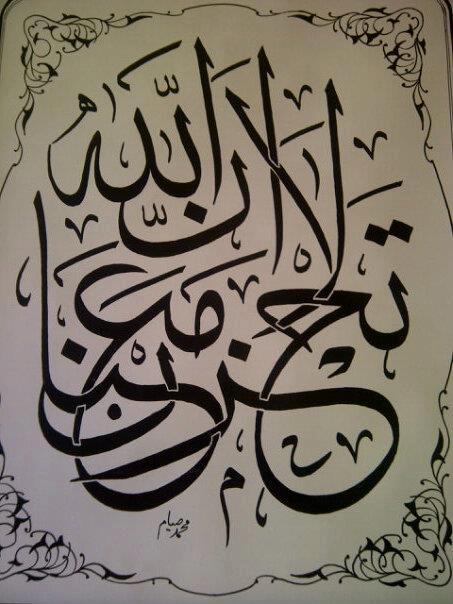 لا تحزن إن الله معنا
محمد صيام